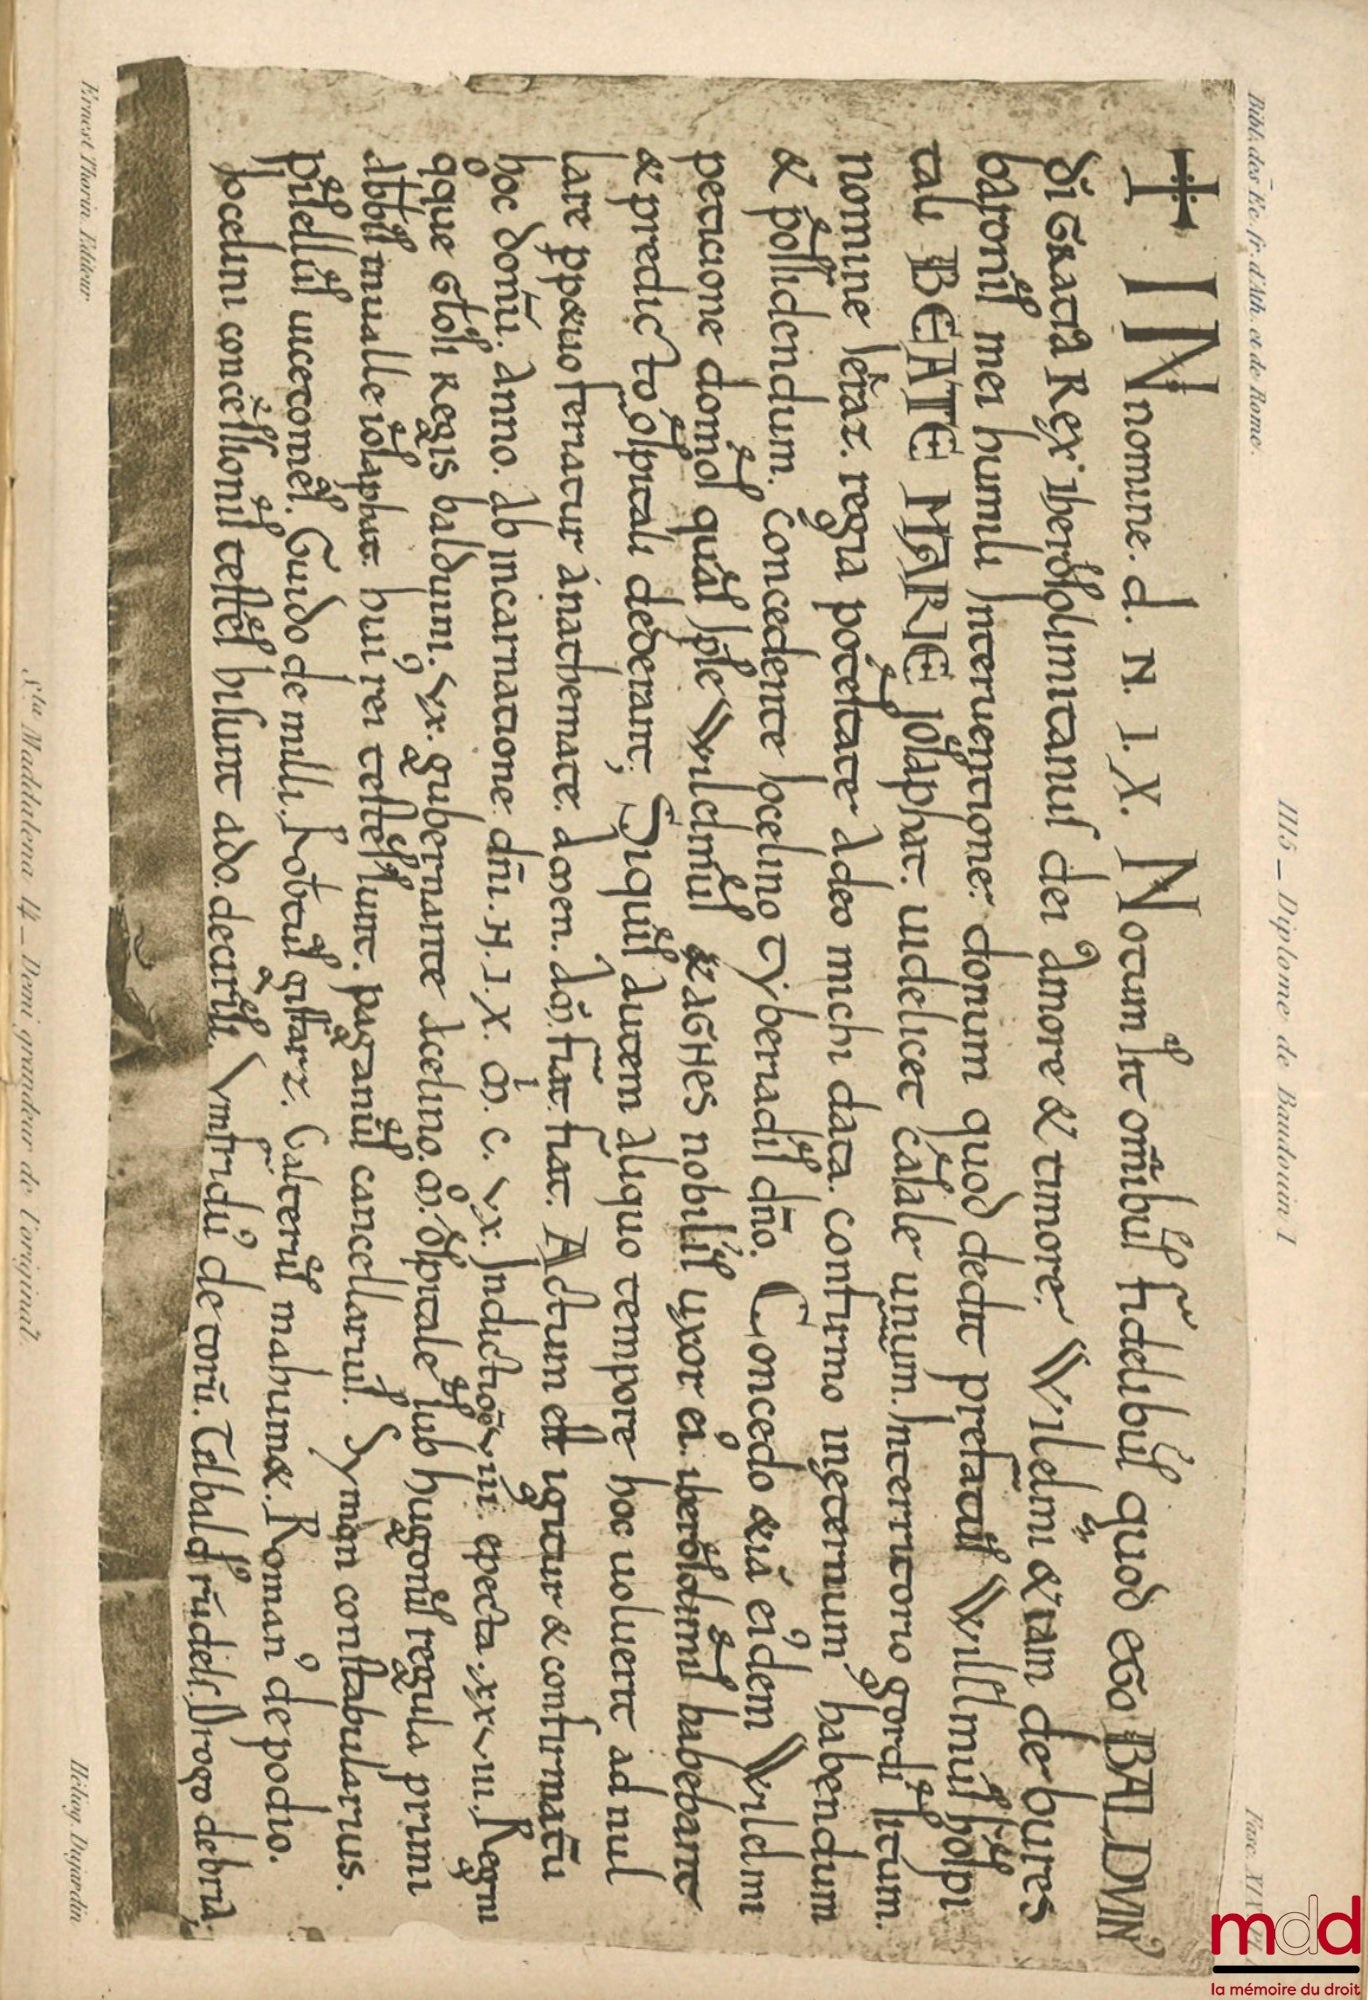 Bibl. des Éc. fr. d'Ath. et de Rome.
Fasc. XIX Pl. I
1115 _ Diplome de Baudouin I
✝ IN nomine. d. N. I. X. Notum sit omībus fidelibus quod ego BALDVIN'
di gratia Rex iherosolimitanus dei amore & timore. Wilelmi &iam de bures
baronis mei humili interuentione. donum quod dedit prefatus Willlmus hospi
tali BEATE MARIE iosaphat. uidelicet casale unum. In territorio gordi situm.
nomine regia potestate adeo michi data. confirmo ineternum habendum
& possidendum. Concedente Iocelino tyberiadis dño. Concedo &iā eidem Wilelmi
peticione domos quas ipse Wilelmus &AGHES nobilis uxor ei' iherosolimis habebant
& predicto ospitali dederant; Siquis autem aliquo tempore hoc uoluerit ad nul
lare pp&uo feriatur anathemate. amen. fiat. fiat. Actum est igitur & confirmatū
hoc donū. anno. ab incarnatione dñi. N. I. X. C. xv. Indictiōe epecta Regni
qque regis balduini. xv. gubernante Acelino ospitale sub hugonis regula primi
abbis inualle iosaphat. hui' rei testes sunt. paganus cancellarius. Symon constabularius.
pisellus uicecomes. Guido de milli. Rotbtus Galterius mahum&. Roman' de podio.
Iocelini concessionis testes hi sunt Vmfridus de torū. Tebald' Drogo de bria
Ernest Thorin, Editeur
Héliog. Dujardin
Sta Maddalena 14 _ Demi grandeur de l'original.
mdd
la mémoire du droit